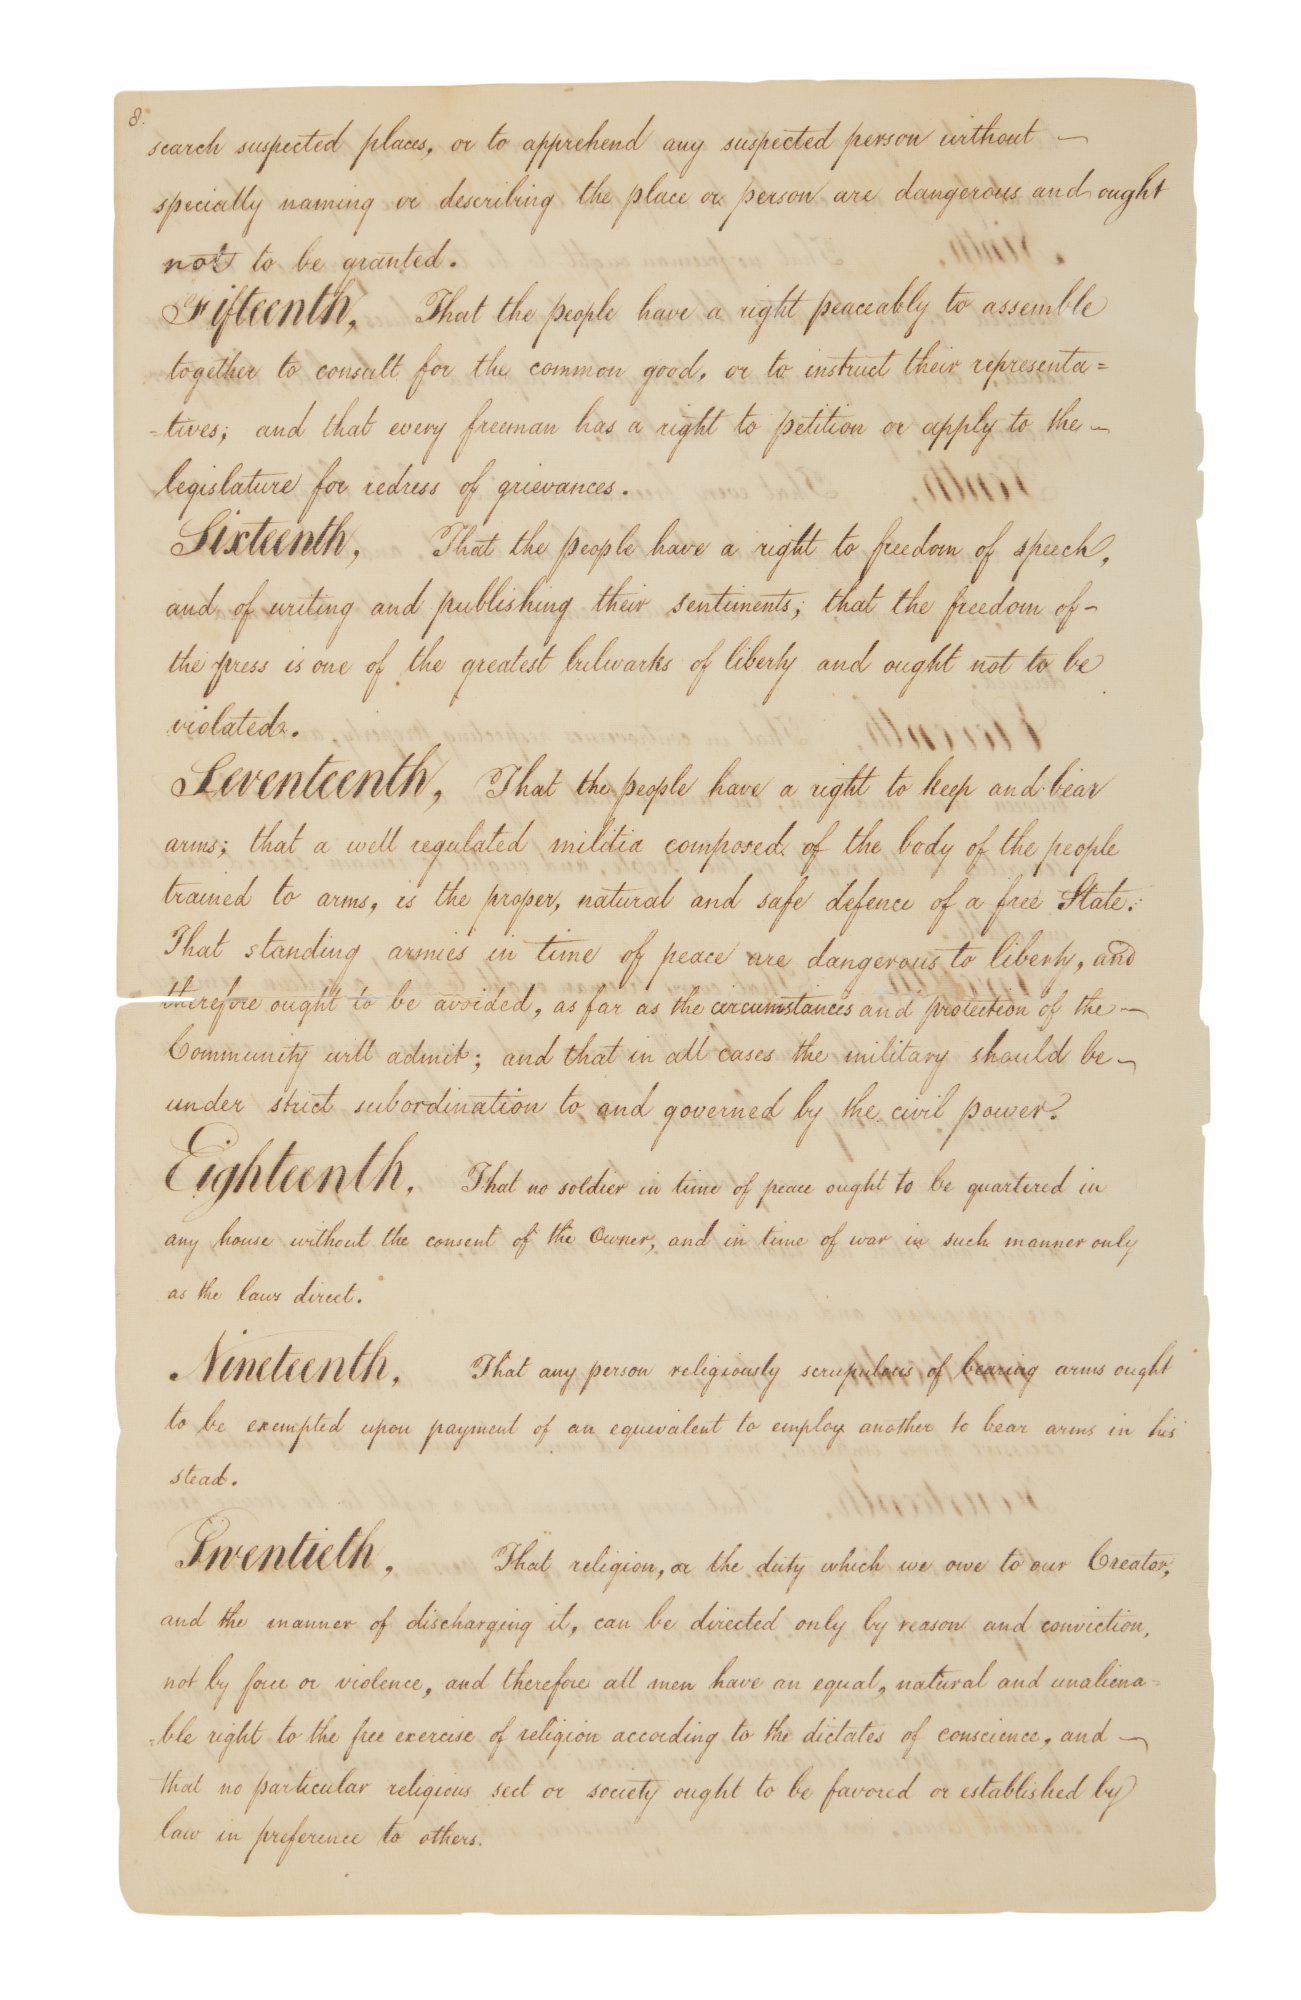 8.
search suspected places, or to apprehend any suspected person without —
specially naming or describing the place or person are dangerous and ought
not to be granted.
Fifteenth, That the people have a right peaceably to assemble
together to consult for the common good, or to instruct their representa=
=tives; and that every freeman has a right to petition or apply to the —
legislature for redress of grievances.
Sixteenth, That the people have a right to freedom of speech,
and of writing and publishing their sentiments; that the freedom of —
the press is one of the greatest bulwarks of liberty and ought not to be
violated.
Seventeenth, That the people have a right to keep and bear
arms; that a well regulated militia composed of the body of the people
trained to arms, is the proper, natural and safe defence of a free State.
That standing armies in time of peace are dangerous to liberty, and
therefore ought to be avoided, as far as the circumstances and protection of the —
Community will admit; and that in all cases the military should be —
under strict subordination to and governed by the civil power.
Eighteenth, That no soldier in time of peace ought to be quartered in
any house without the consent of the Owner, and in time of war in such manner only
as the laws direct.
Nineteenth, That any person religiously scrupulous of bearing arms ought
to be exempted upon payment of an equivalent to employ another to bear arms in his
stead.
Twentieth, That religion, or the duty which we owe to our Creator,
and the manner of discharging it, can be directed only by reason and conviction,
not by force or violence, and therefore all men have an equal, natural and unaliena=
=ble right to the free exercise of religion according to the dictates of conscience, and —
that no particular religious sect or society ought to be favored or established by
law in preference to others.